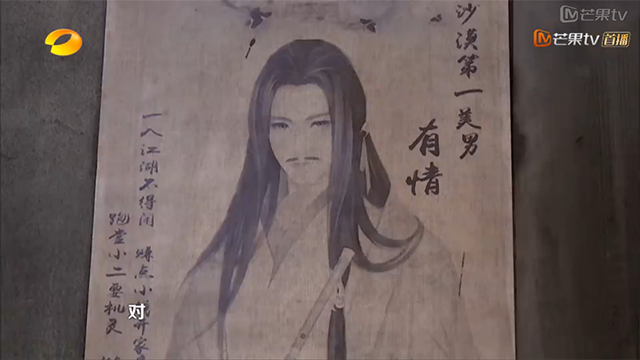 芒果tv
芒果tv 首播
沙漠第一美男
有情
一入江湖不得闲 赚点小钱开家
跑堂小二要机灵
对